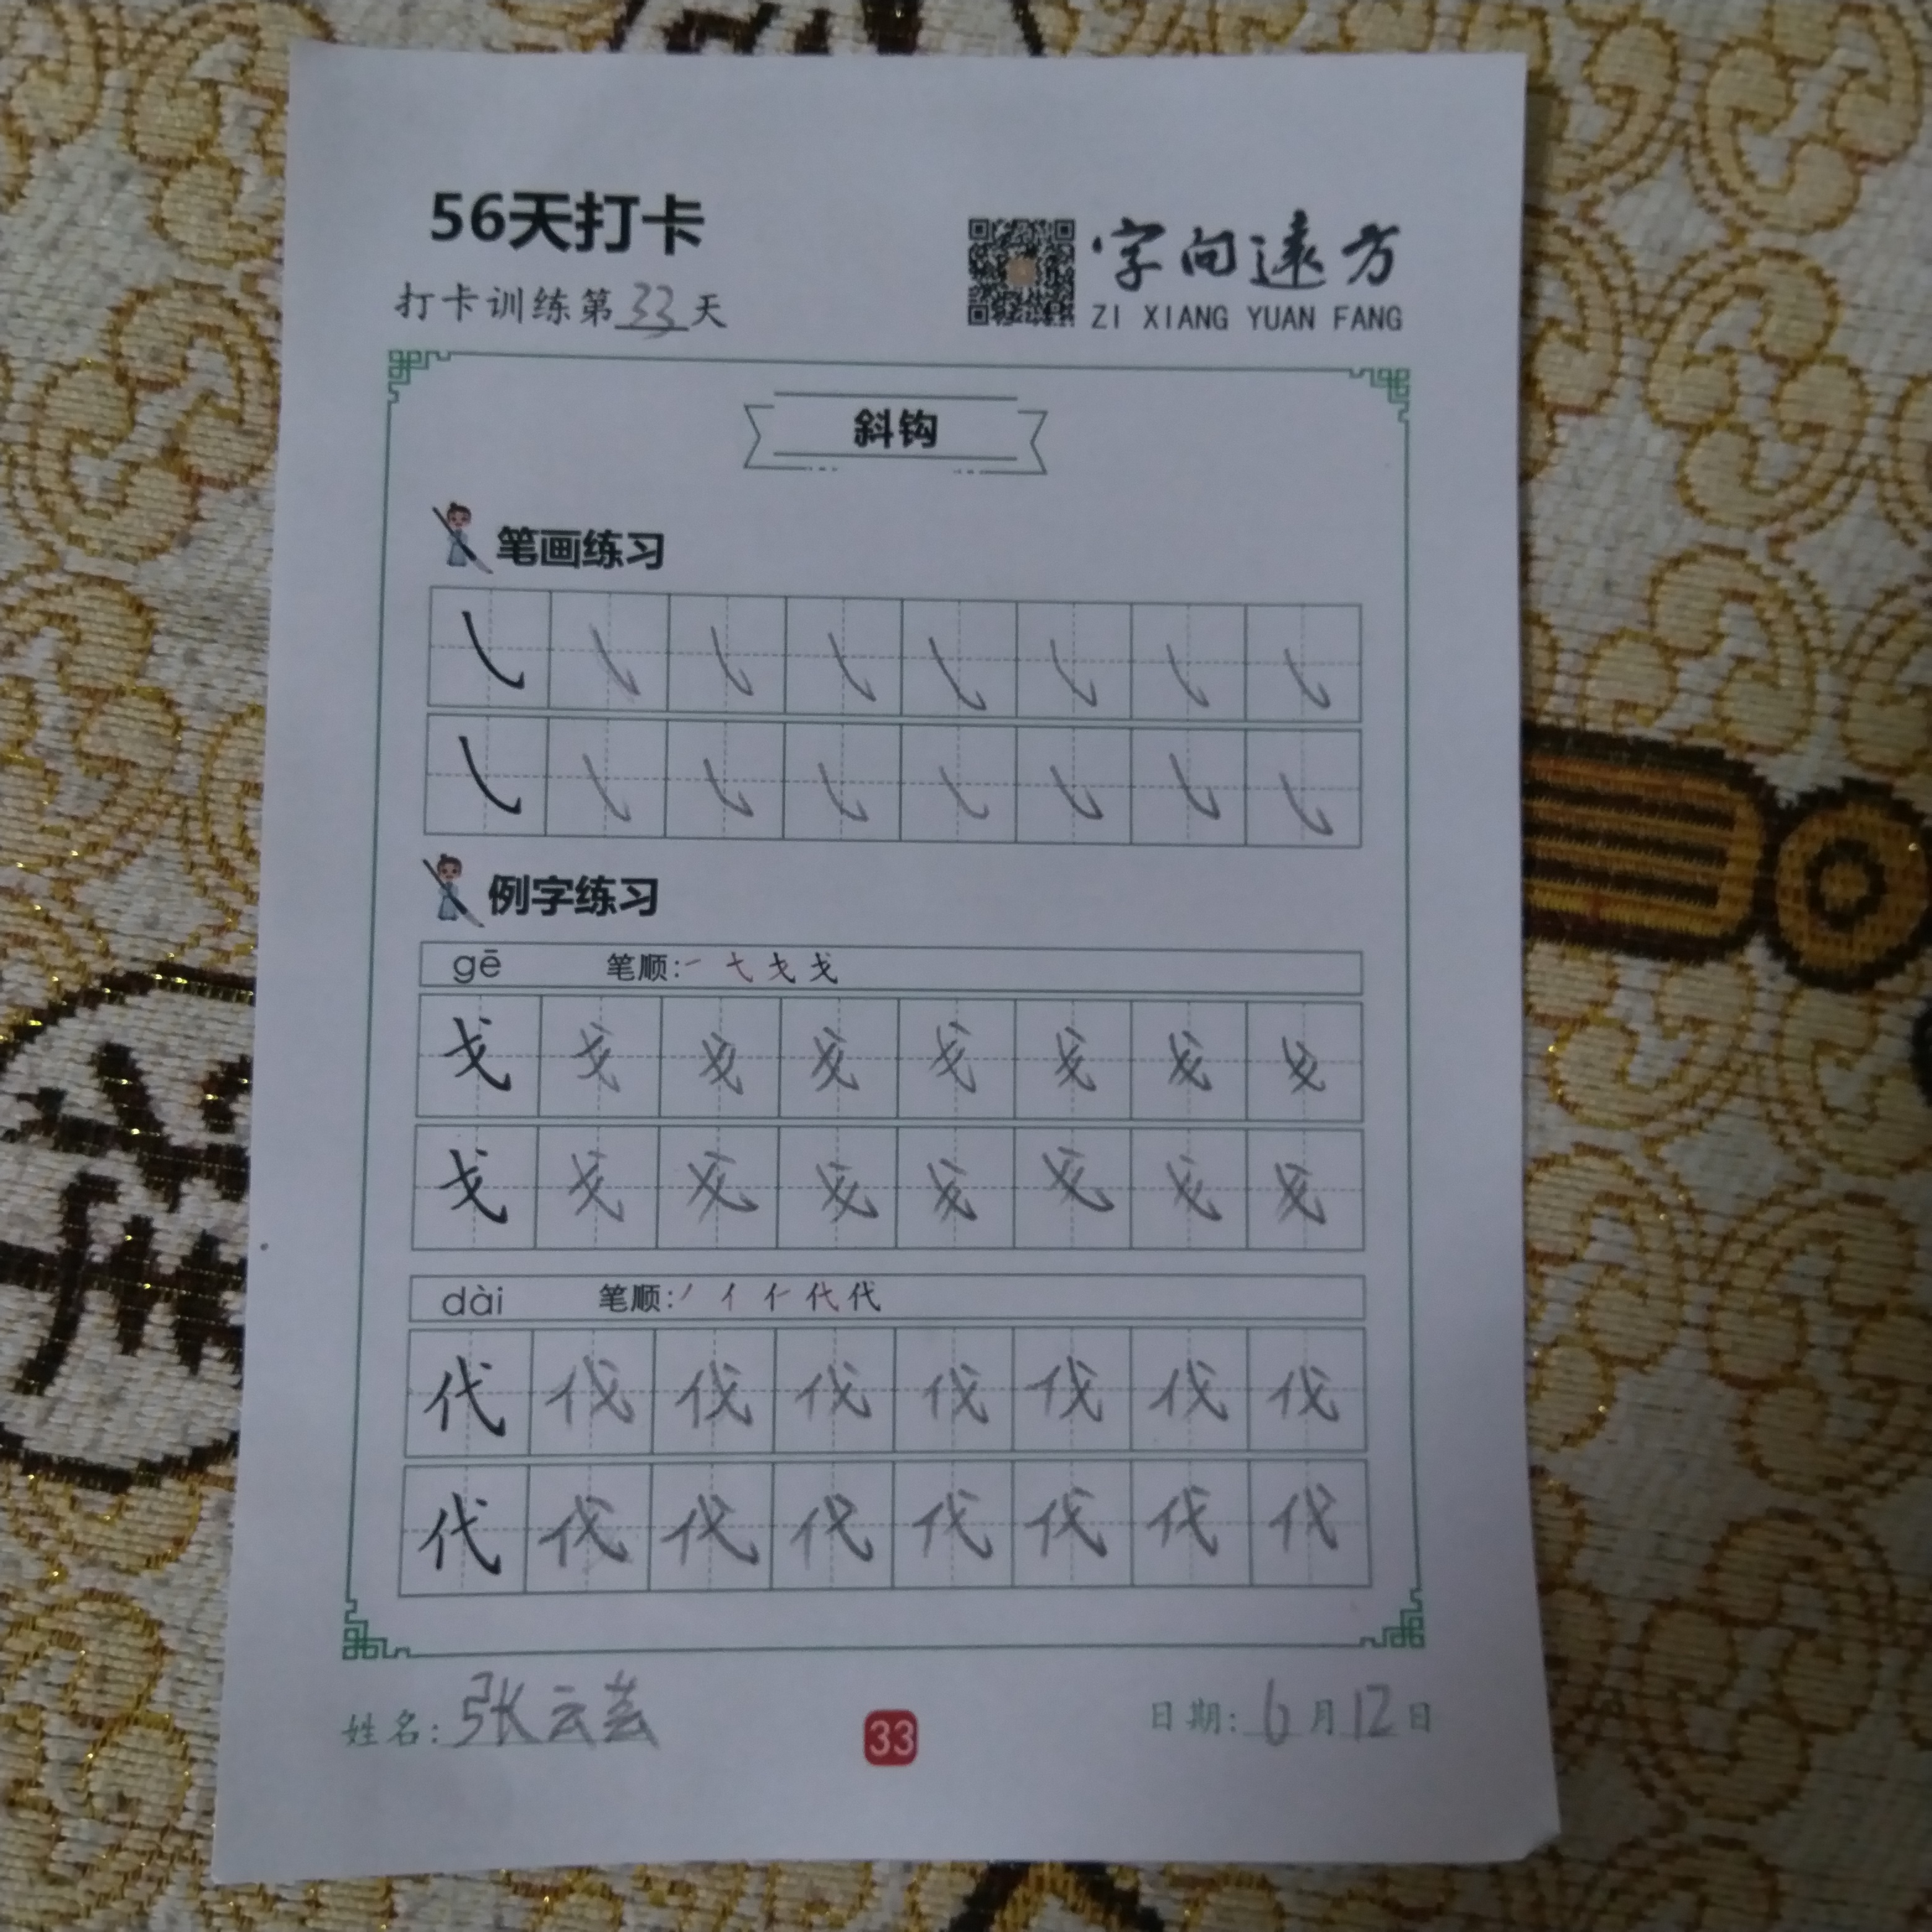 56天打卡
打卡训练第33天
字向远方
ZI XIANG YUAN FANG
斜钩
笔画练习
㇂ ㇂ ㇂ ㇂ ㇂ ㇂ ㇂ ㇂
㇂ ㇂ ㇂ ㇂ ㇂ ㇂ ㇂ ㇂
例字练习
gē 笔顺:一 七 戈 戈
戈 戈 戈 戈 戈 戈 戈 戈
戈 戈 戈 戈 戈 戈 戈 戈
dài 笔顺:丿 亻 仁 代 代
代 伐 伐 伐 伐 伐 伐 伐
代 伐 代 代 代 伐 代 代
姓名:张云芸
33
日期:6月12日